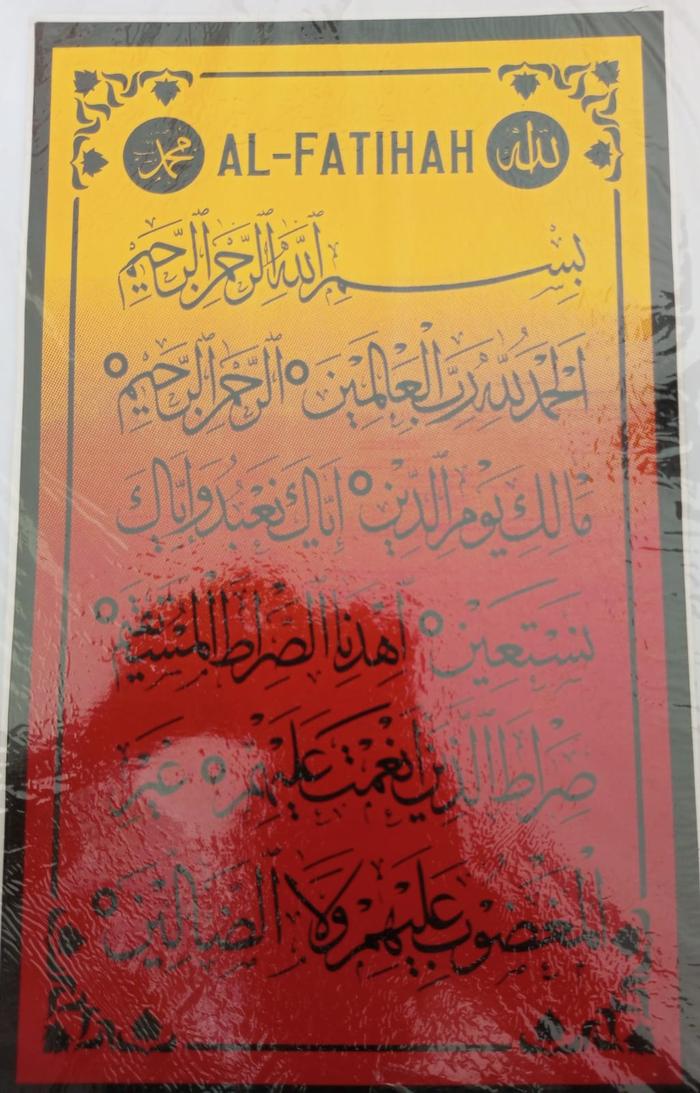 محمد AL-FATIHAH الله
بِسْمِ اللّٰهِ الرَّحْمٰنِ الرَّحِيْمِ
اَلْحَمْدُ لِلّٰهِ رَبِّ الْعَالَمِيْنَ ۝ الرَّحْمٰنِ الرَّحِيْمِ ۝
مَالِكِ يَوْمِ الدِّيْنِ ۝ إِيَّاكَ نَعْبُدُ وَإِيَّاكَ
نَسْتَعِيْنُ ۝ اِهْدِنَا الصِّرَاطَ الْمُسْتَقِيْمَ ۝
صِرَاطَ الَّذِيْنَ أَنْعَمْتَ عَلَيْهِمْ ۝ غَيْرِ
الْمَغْضُوْبِ عَلَيْهِمْ وَلَا الضَّالِّيْنَ ۝